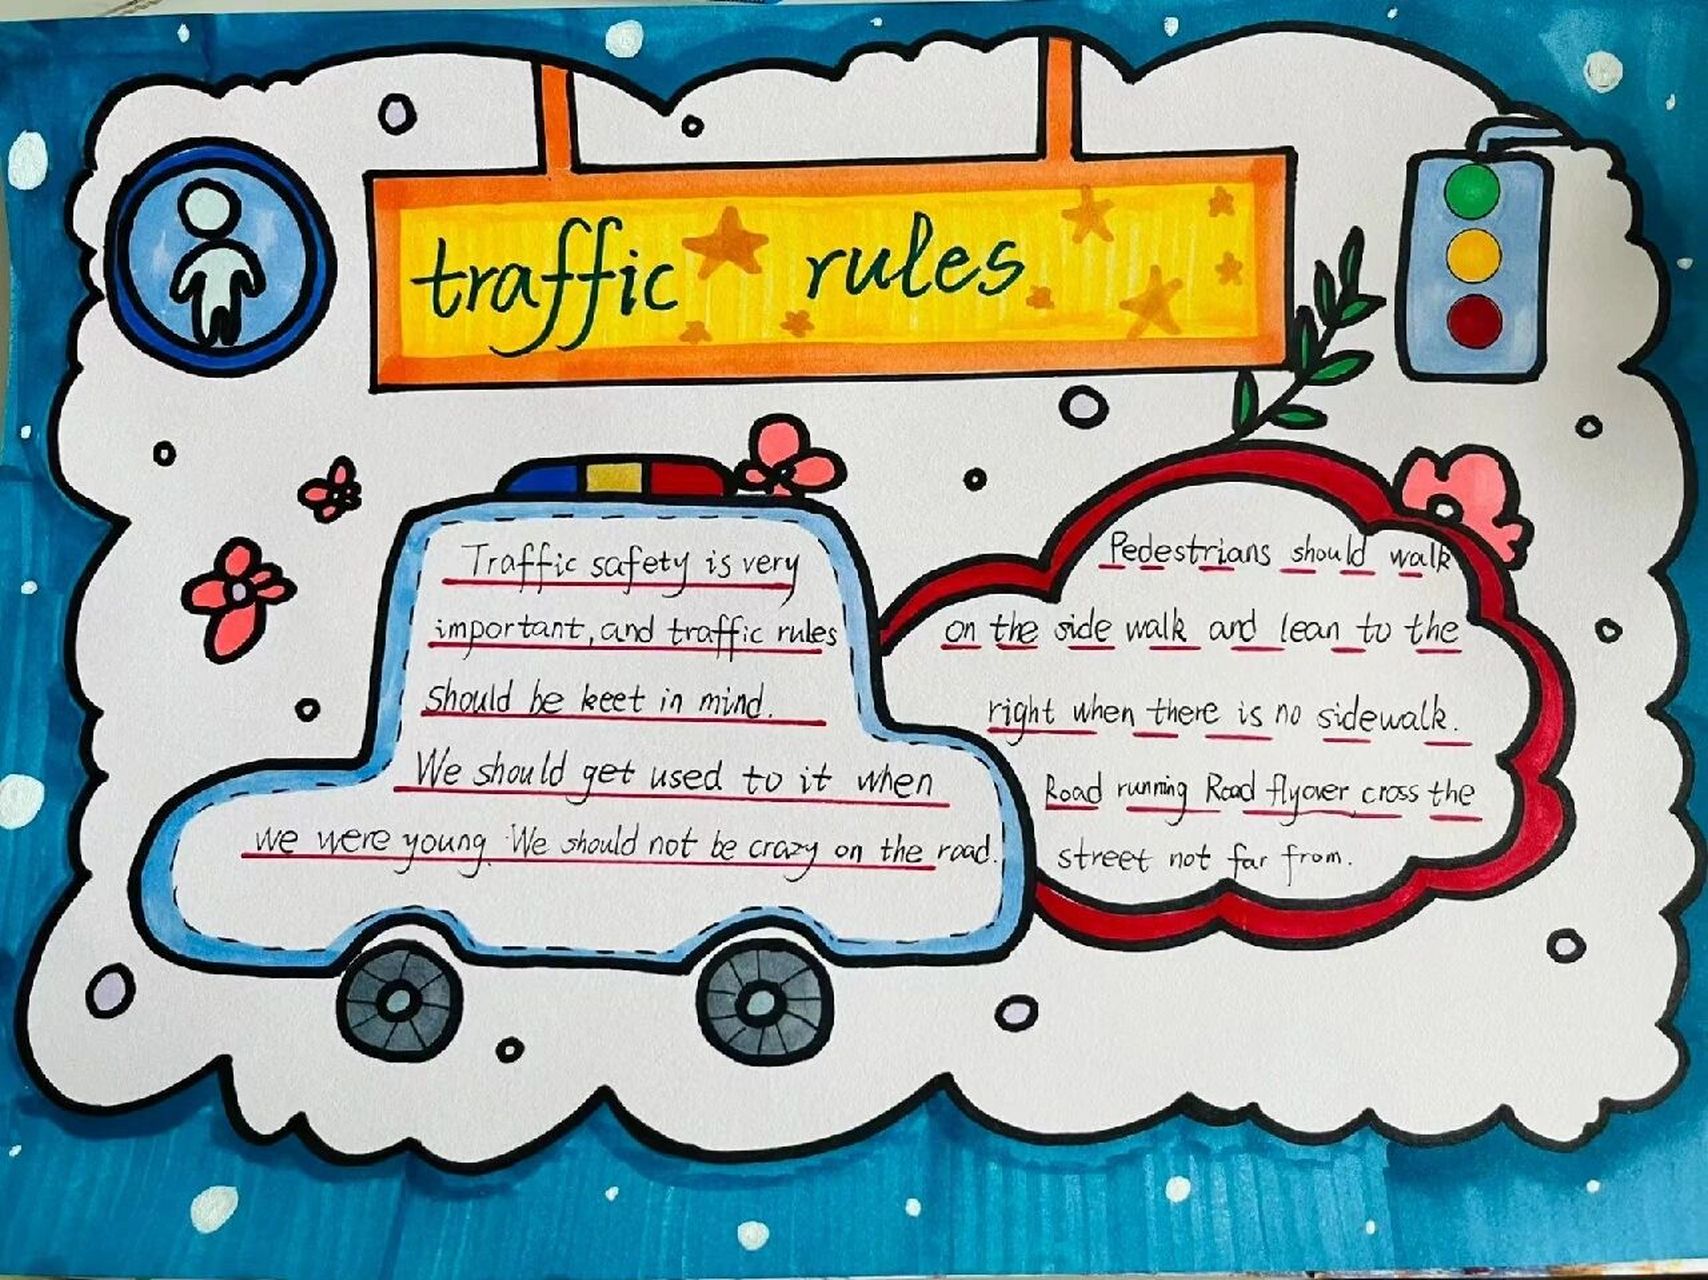 traffic rules
Traffic safety is very
important, and traffic rules
should be keet in mind.
We should get used to it when
we were young. We should not be crazy on the road.
Pedestrians should walk
on the side walk and lean to the
right when there is no sidewalk.
Road running Road flyover cross the
street not far from.